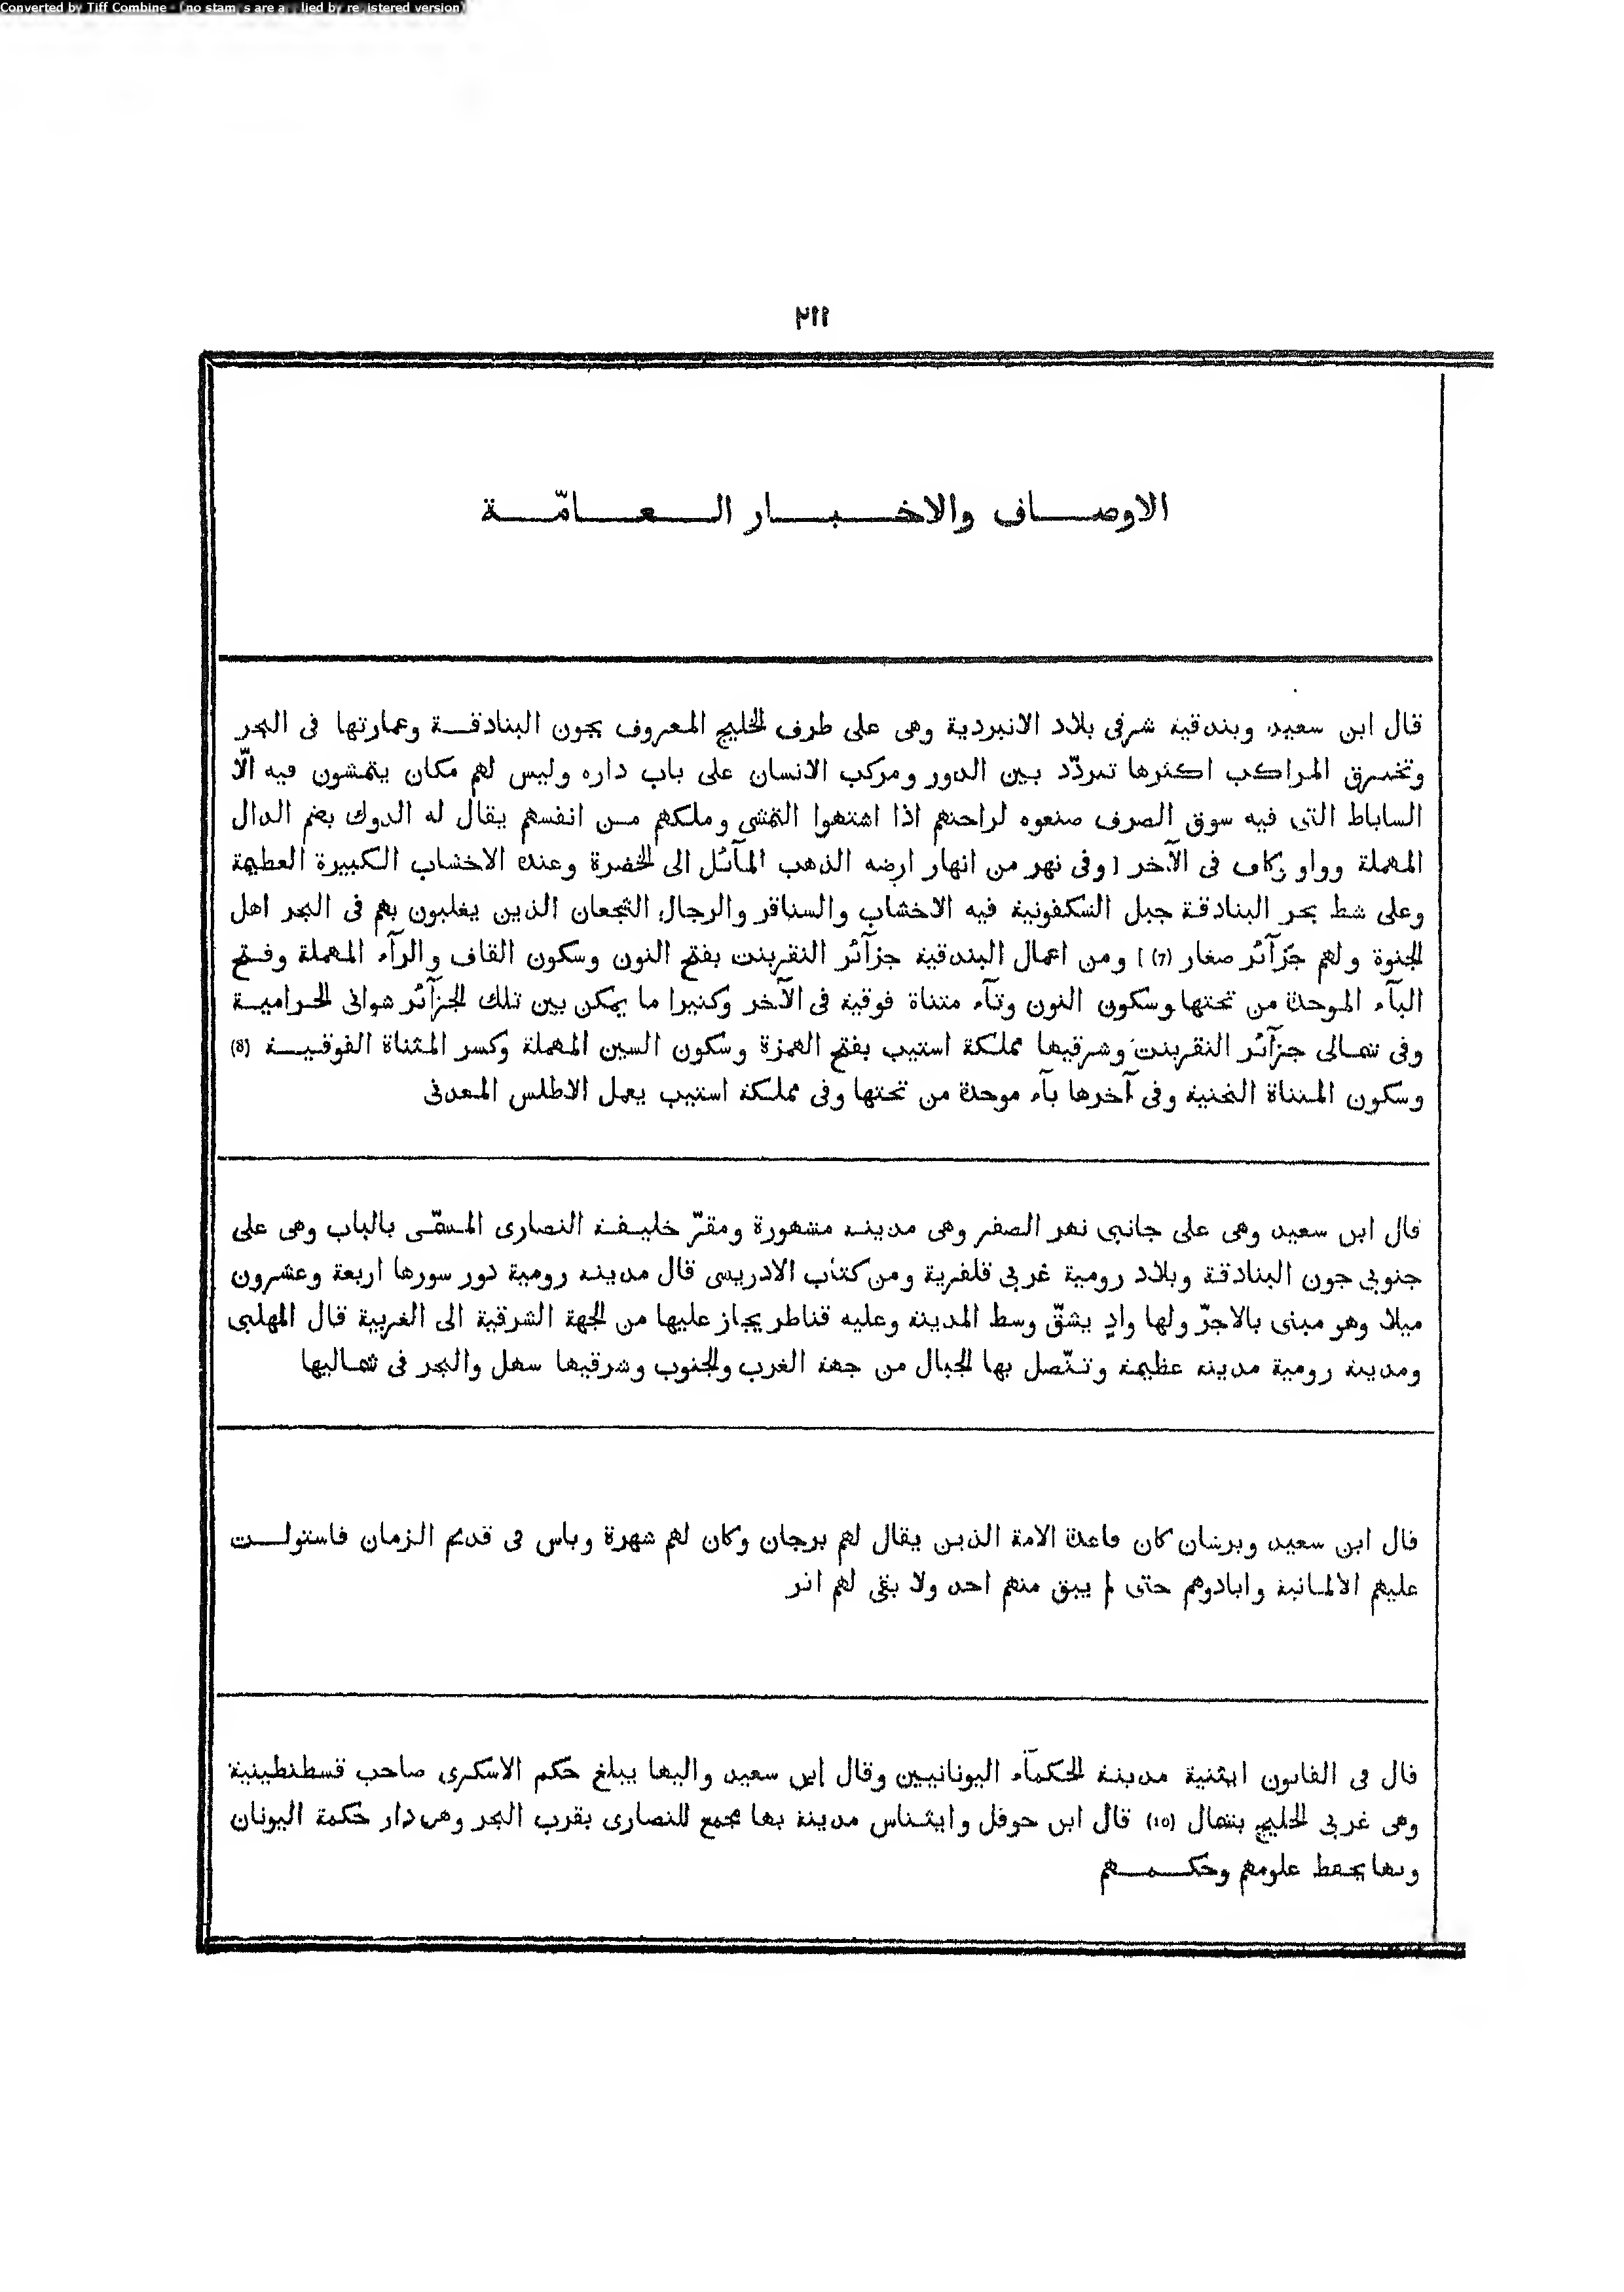 Converted by Tiff Combine - (no stamps are applied by registered version)
٢١١
الاوصاف والاخبار العامّة
قال ابن سعيد وبندقية شرقى بلاد الانبردية وهى على طرف الخليج المعروف بجون البنادقة وعمارتها فى البحر
وتخترق المراكب اكثرها تتردّد بين الدور ومركب الانسان على باب داره وليس لهم مكان يتمشون فيه الّا
الساباط التى فيه سوق الصرف صنعوه لراحتهم اذا اشتهوا التمشى وملكهم من انفسهم يقال له الدوك بضم الدال
المهملة وواو وكاف فى الآخر [ وفى نهر من انهار ارضه الذهب المآئل الى الخضرة وعنده الاخشاب الكبيرة العظيمة
وعلى شط بحر البنادقة جبل السكفونية فيه الاخشاب والسناقر والرجال الشجعان الذين يغلبون بهم فى البحر اهل
الجنوة ولهم جزآئر صغار (7) ] ومن اعمال البندقية جزآئر النقربنت بفتح النون وسكون القاف والرآء المهملة وفتح
البآء الموحدة من تحتها وسكون النون وتآء مثناة فوقية فى الآخر وكثيرا ما يمكن بين تلك الجزآئر شوانى الحرامية
وفى شمالى جزآئر النقربنت وشرقيها مملكة استيب بفتح الهمزة وسكون السين المهملة وكسر المثناة الفوقية (8)
وسكون المثناة التحتية وفى آخرها بآء موحدة من تحتها وفى مملكة استيب يعمل الاطلس المعدنى
قال ابن سعيد وهى على جانبى نهر الصفر وهى مدينة مشهورة ومقرّ خليفة النصارى المسمّى بالباب وهى على
جنوبى جون البنادقة وبلاد رومية غربى قلفرية ومن كتاب الادريسى قال مدينة رومية دور سورها اربعة وعشرون
ميلا وهو مبنى بالاجرّ ولها وادٍ يشقّ وسط المدينة وعليه قناطر يجاز عليها من الجهة الشرقية الى الغربية قال المهلبى
ومدينة رومية مدينة عظيمة وتتّصل بها الجبال من جهة الغرب والجنوب وشرقيها سهل والبحر فى شماليها
قال ابن سعيد وبرشان كان قاعدة الامة الذين يقال لهم برجان وكان لهم شهرة وباس فى قديم الزمان فاستولت
عليهم الالمانية وابادوهم حتى لم يبق منهم احد ولا بقى لهم اثر
قال فى القانون ايثنية مدينة الحكمآء اليونانيين وقال ابن سعيد واليها يبلغ حكم الاسكرى صاحب قسطنطينية
وهى غربى الخليج بشمال (10) قال ابن حوقل وايثناس مدينة بها مجمع للنصارى بقرب البحر وهى دار حكمة اليونان
وبها يحفظ علومهم وحكمهم